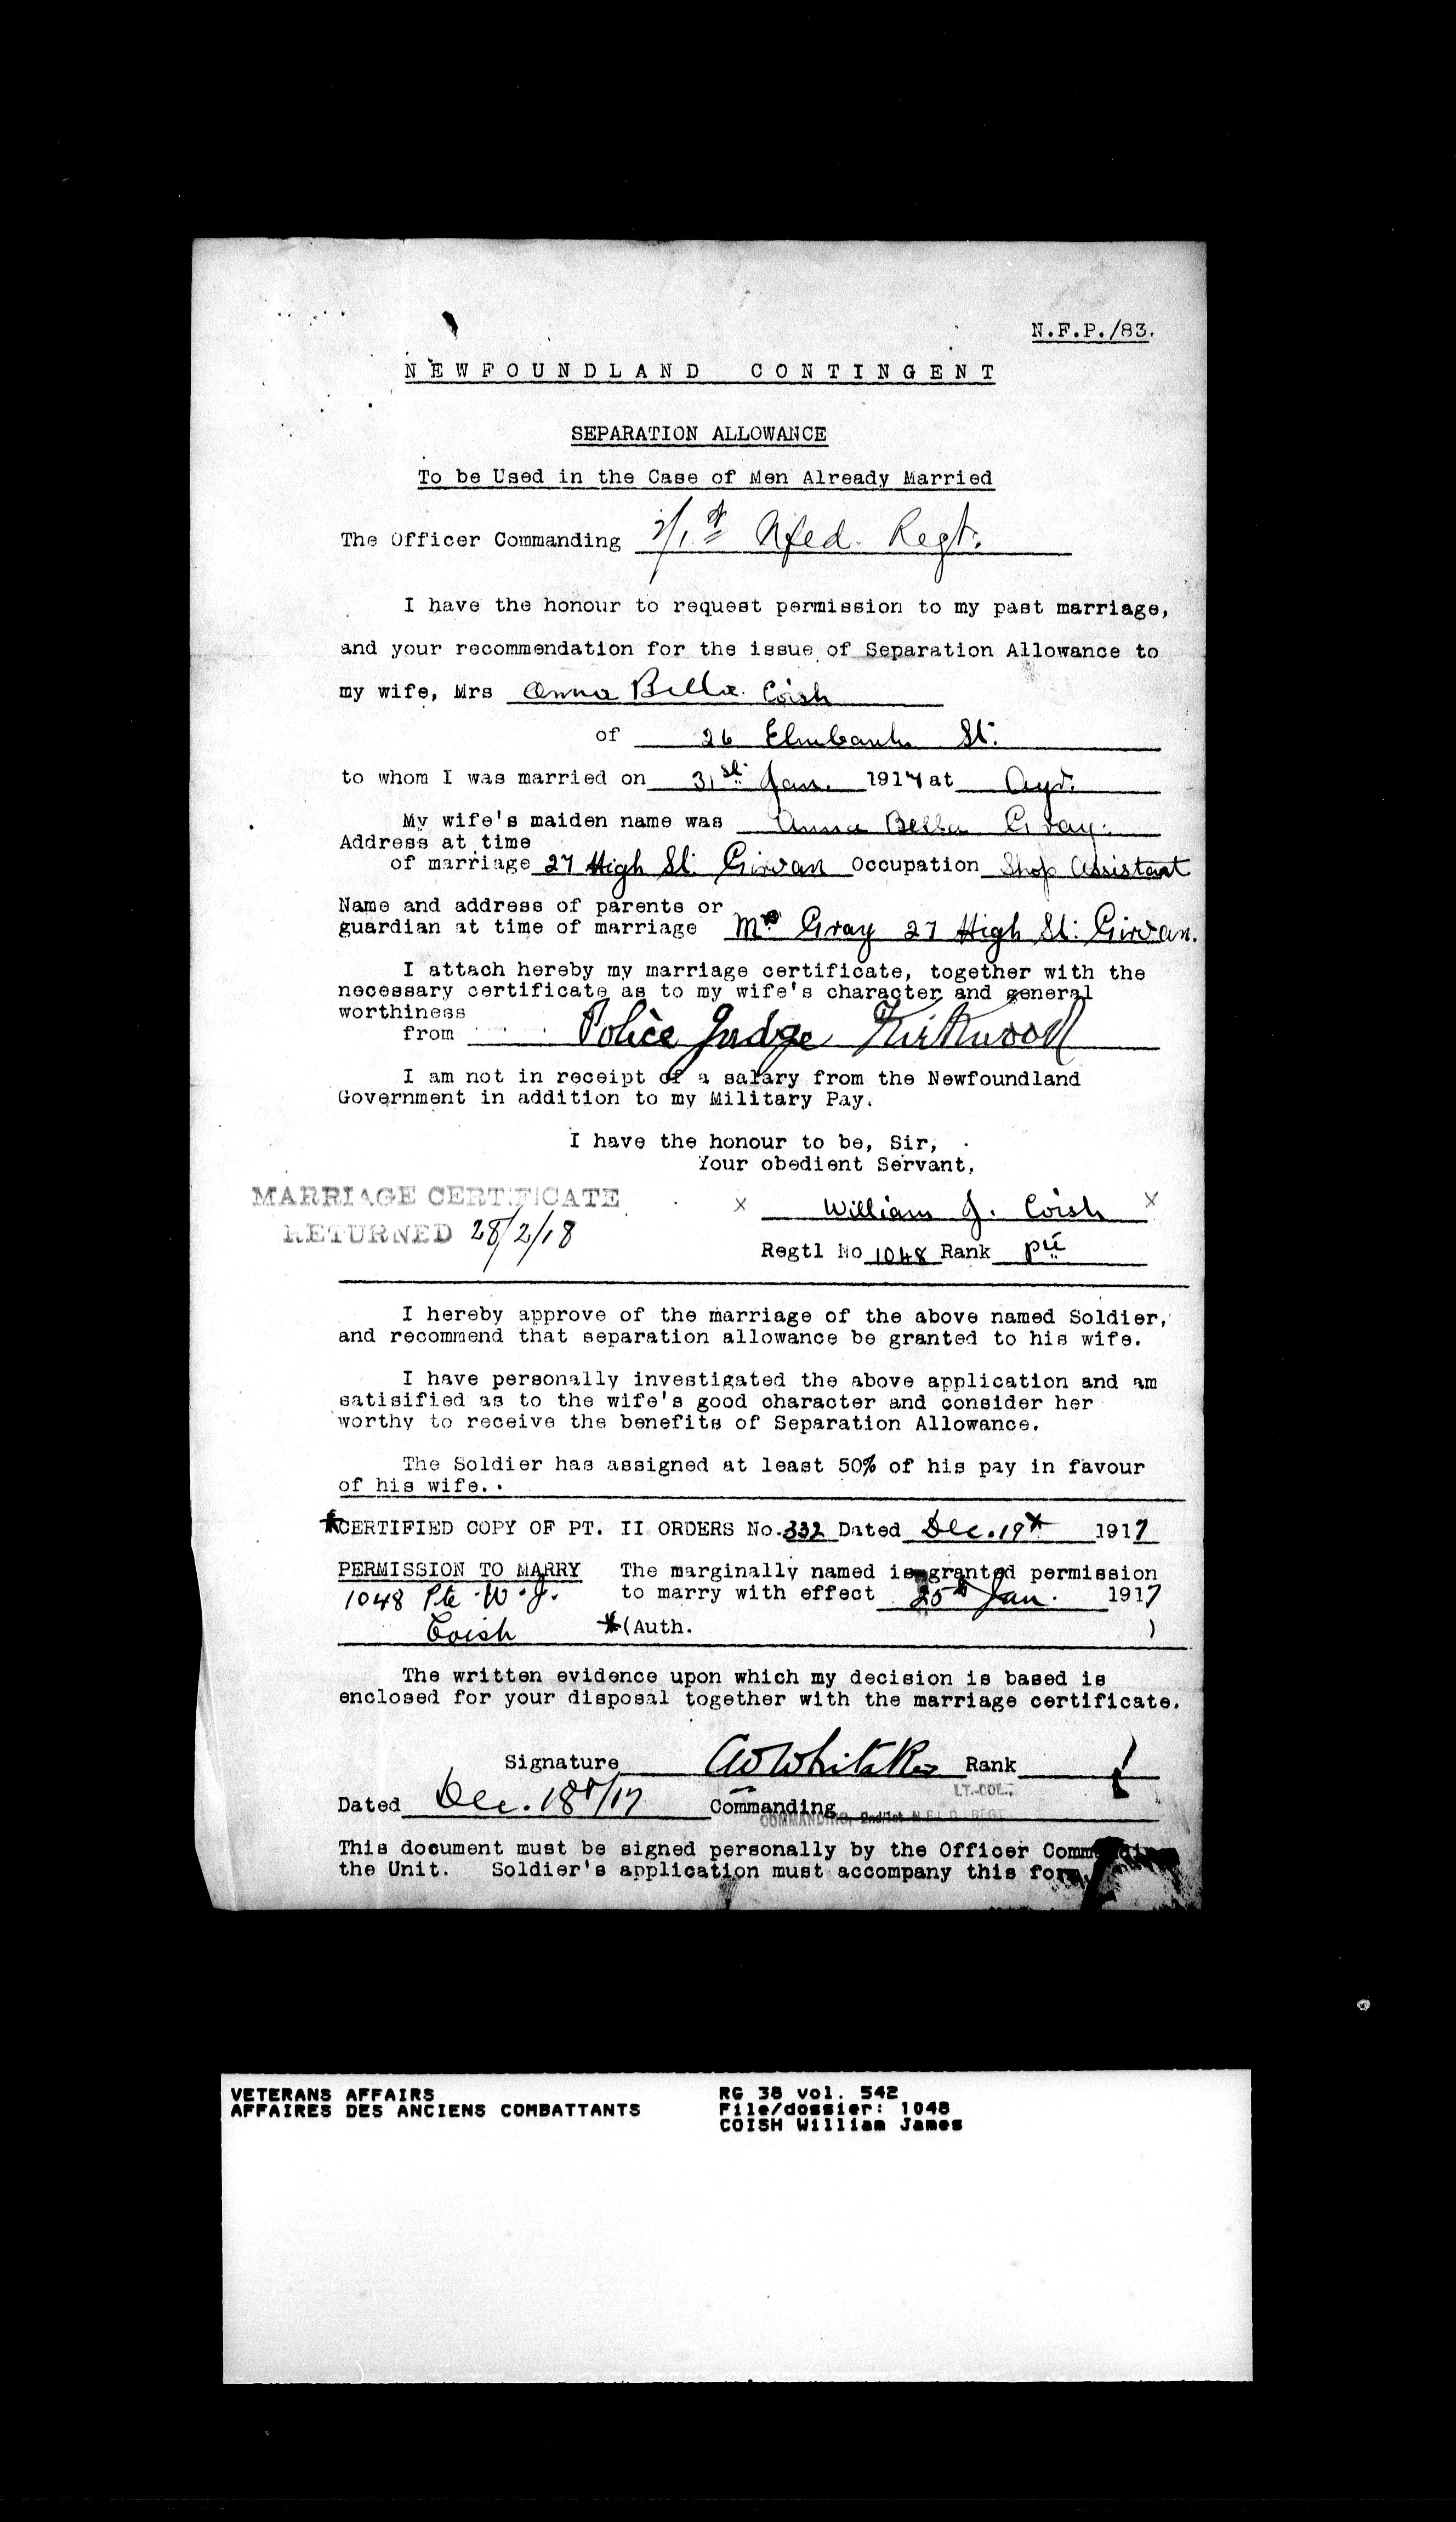 N.F.P./83.
NEWFOUNDLAND CONTINGENT
SEPARATION ALLOWANCE
To be Used in the Case of Men Already Married
The Officer Commanding 2/1st Nfed. Regt.
I have the honour to request permission to my past marriage,
and your recommendation for the issue of Separation Allowance to
my wife, Mrs Anna Bella Coish
of 26 Elmbank St.
to whom I was married on 31st Jan. 1917 at Ayr.
My wife's maiden name was Anna Bella Gray.
Address at time
of marriage 27 High St. Girvan Occupation Shop Assistant
Name and address of parents or
guardian at time of marriage Mrs Gray 27 High St: Girvan.
I attach hereby my marriage certificate, together with the
necessary certificate as to my wife's character and general
worthiness
from Police Judge Kirkwood
I am not in receipt of a salary from the Newfoundland
Government in addition to my Military Pay.
I have the honour to be, Sir,
Your obedient Servant,
MARRIAGE CERTIFICATE
x William J. Coish x
RETURNED 28/2/18
Regtl No 1048 Rank Pte
I hereby approve of the marriage of the above named Soldier,
and recommend that separation allowance be granted to his wife.
I have personally investigated the above application and am
satisified as to the wife's good character and consider her
worthy to receive the benefits of Separation Allowance.
The Soldier has assigned at least 50% of his pay in favour
of his wife.
*CERTIFIED COPY OF PT. II ORDERS No. 332 Dated Dec. 19th 1917
PERMISSION TO MARRY The marginally named is granted permission
1048 Pte W. J. to marry with effect 25th Jan. 1917
Coish *(Auth. )
The written evidence upon which my decision is based is
enclosed for your disposal together with the marriage certificate.
Signature Rank
LT.-COL.,
Dated Dec. 18th/17 Commanding
COMMANDING, 2nd/1st NFLD. REGT.
This document must be signed personally by the Officer Commanding
the Unit. Soldier's application must accompany this form.
VETERANS AFFAIRS RG 38 vol. 542
AFFAIRES DES ANCIENS COMBATTANTS File/dossier: 1048
COISH William James